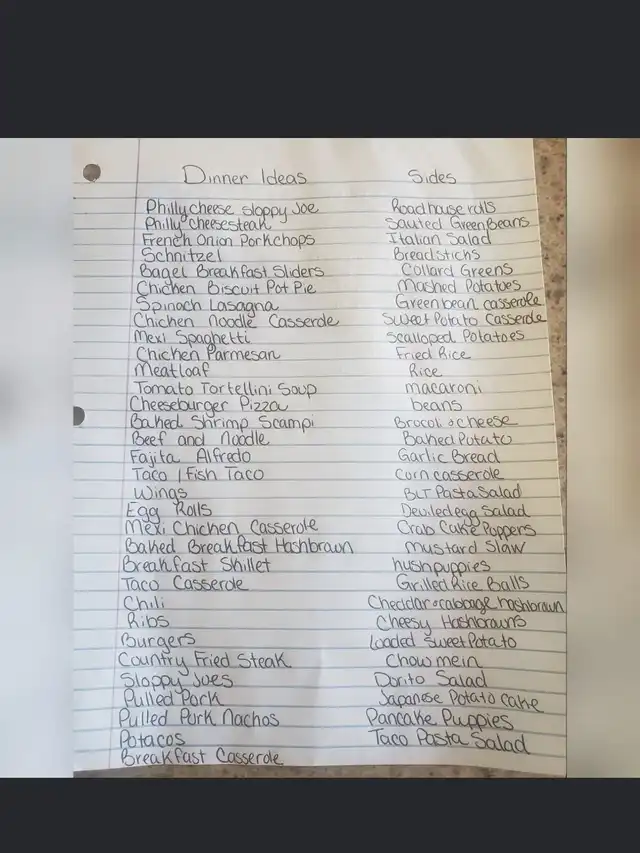 Dinner Ideas
Sides
Philly cheese sloppy Joe
Philly cheesesteak
French Onion Porkchops
Schnitzel
Bagel Breakfast Sliders
Chicken Biscuit Pot Pie
Spinach Lasagna
Chicken Noodle Casserole
Mexi Spaghetti
Chicken Parmesan
Meatloaf
Tomato Tortellini Soup
Cheeseburger Pizza
Baked Shrimp Scampi
Beef and Noodle
Fajita Alfredo
Taco / Fish Taco
Wings
Egg Rolls
Mexi Chicken Casserole
Baked Breakfast Hashbrown
Breakfast Skillet
Taco Casserole
Chili
Ribs
Burgers
Country Fried Steak
Sloppy Joes
Pulled Pork
Pulled Pork Nachos
Potacos
Breakfast Casserole
Roadhouse rolls
Sauted Green Beans
Italian Salad
Breadsticks
Collard Greens
Mashed Potatoes
Greenbean casserole
Sweet Potato Casserole
Scalloped Potatoes
Fried Rice
Rice
macaroni
beans
Brocoli & cheese
Baked Potato
Garlic Bread
Corn casserole
BLT Pasta Salad
Deviledegg Salad
Crab Cake Poppers
Mustard Slaw
hushpuppies
Grilled Rice Balls
Cheddar & cabbage hashbrown
Cheesy Hashbrowns
Loaded Sweet Potato
Chowmein
Dorito Salad
Japanese Potato cake
Pancake Puppies
Taco Pasta Salad